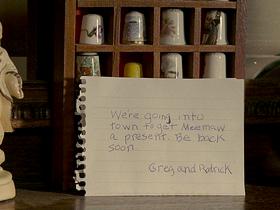 We're going into
town to get Meemaw
a present. Be back
soon.
Greg and Patrick